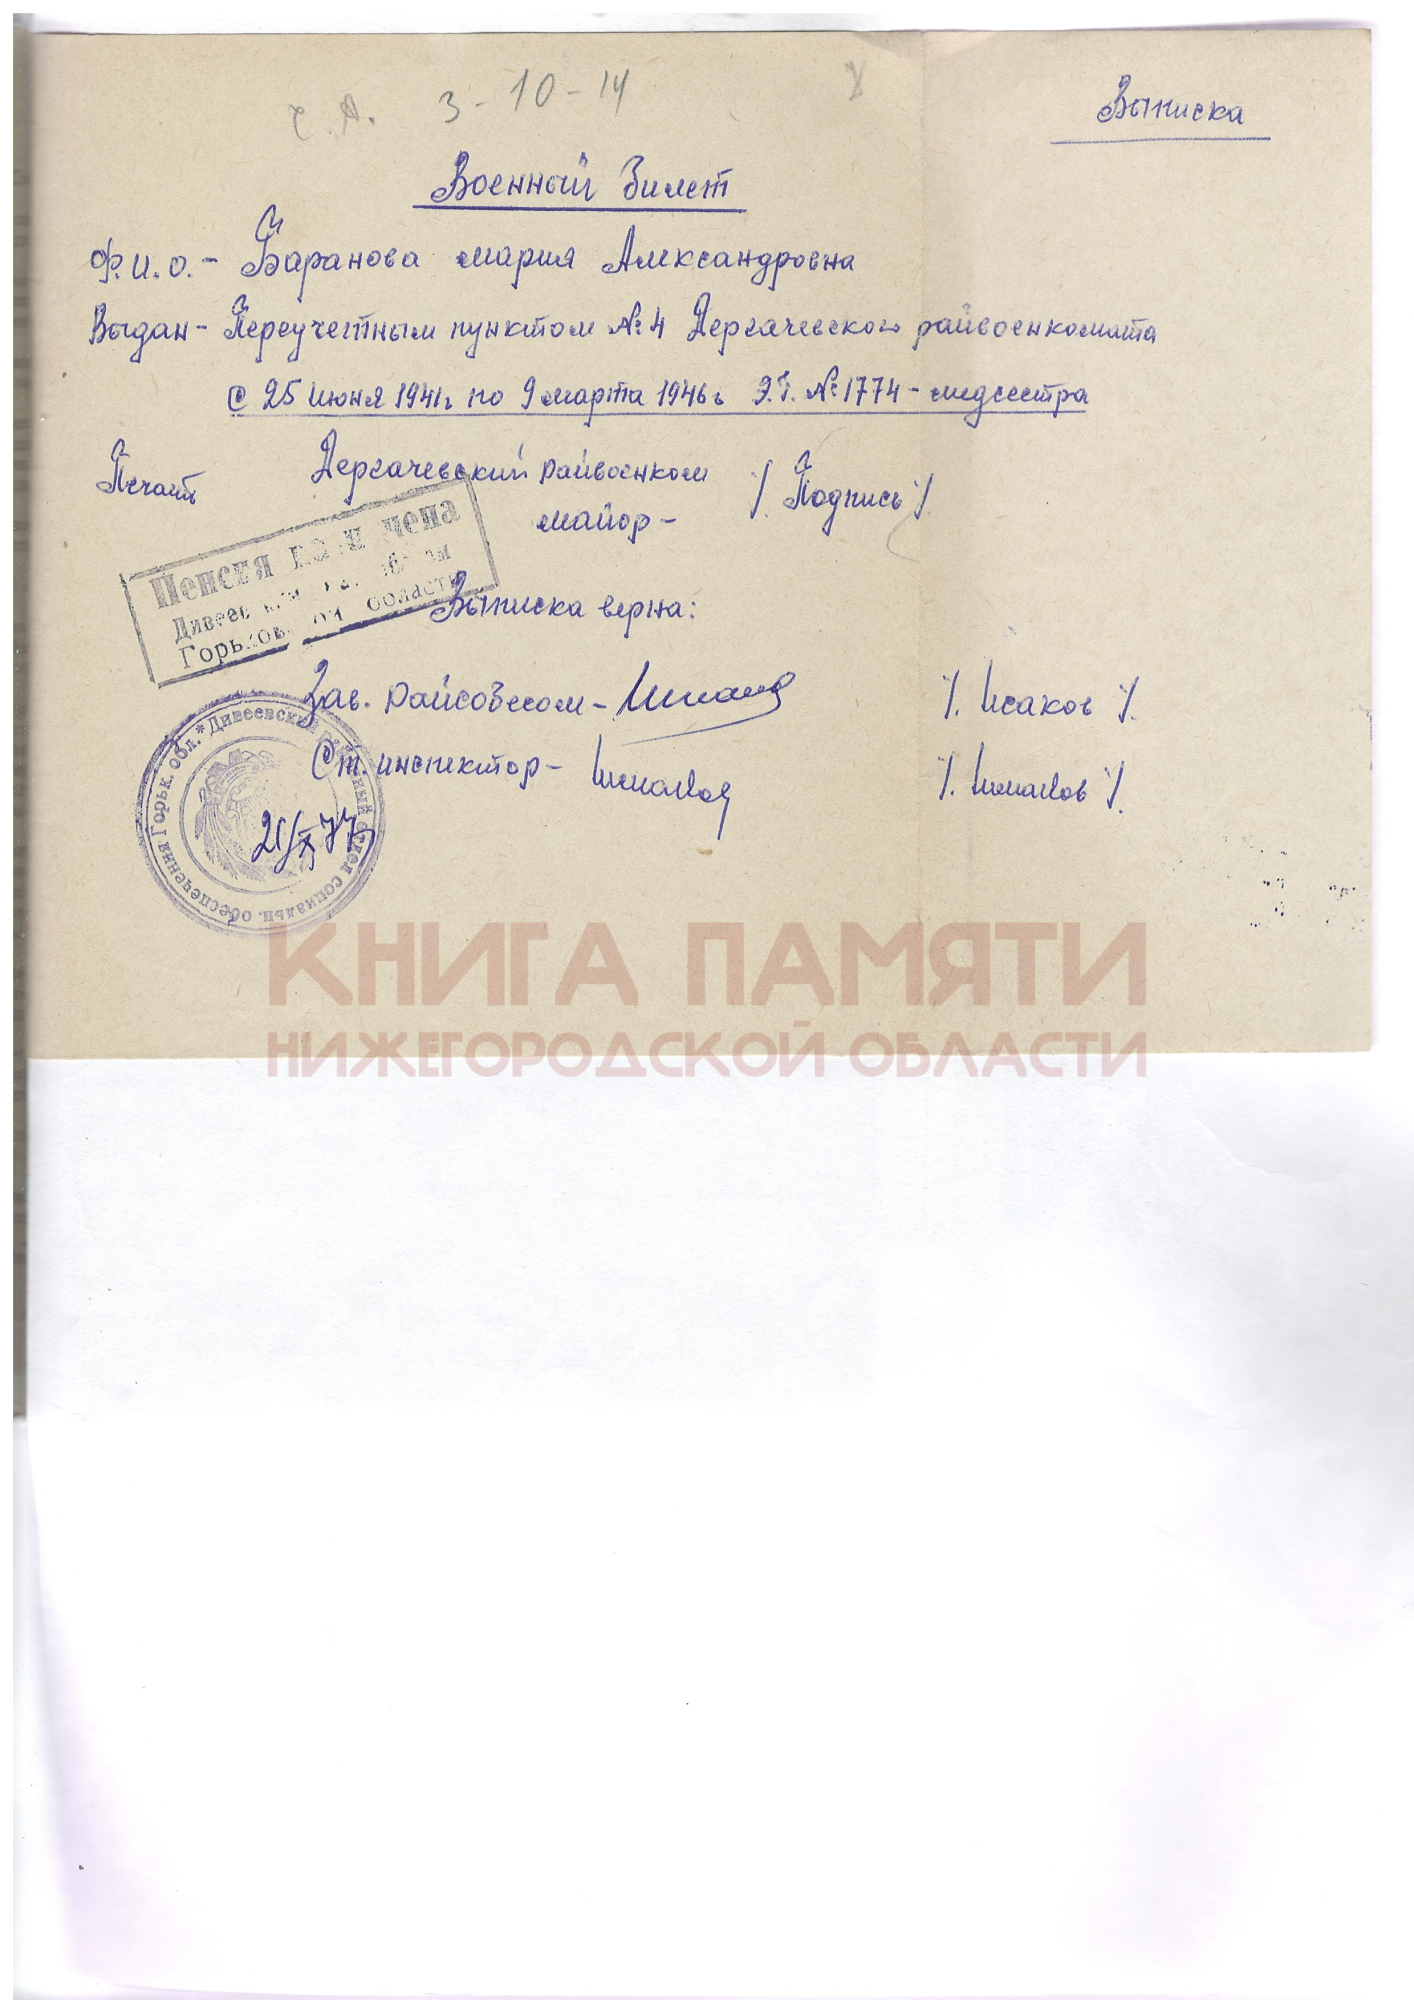 3-10-14
Выписка
Военный билет
Ф.И.О. - Баранова Мария Александровна
Выдан - Переучетным пунктом №4 Дергачевского райвоенкомата
с 25 июня 1941г по 9 марта 1946г Э.Г. №1774 - медсестра
Печать Дергачевский райвоенком /. Подпись /.
майор -
Пенсия
Горьков ой области
Выписка верна:
Зав. райсобесом - /. Исаков /.
Ст. инспектор - /. Шмаков /.
Дивеевский районный отдел социальн. обеспечения Горьк. обл. *
КНИГА ПАМЯТИ
НИЖЕГОРОДСКОЙ ОБЛАСТИ